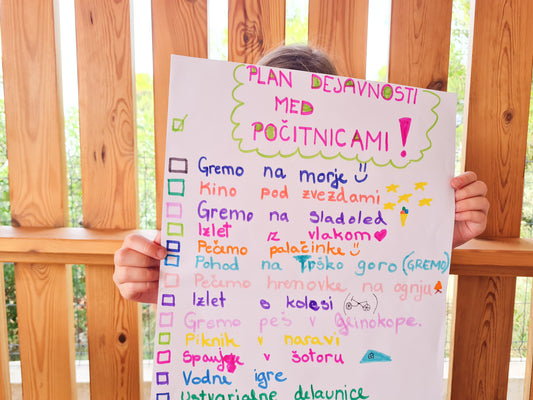 PLAN DEJAVNOSTI
MED
POČITNICAMI!
Gremo na morje
Kino pod zvezdami
Gremo na sladoled
Izlet z vlakom
Pečemo palačinke
Pohod na Trško goro (GREMO)
Pečemo hrenovke na ognju
Izlet s kolesi
Gremo peš v Glinokope.
Piknik v naravi
Spanje v šotoru
Vodne igre
Ustvarjalne delavnice